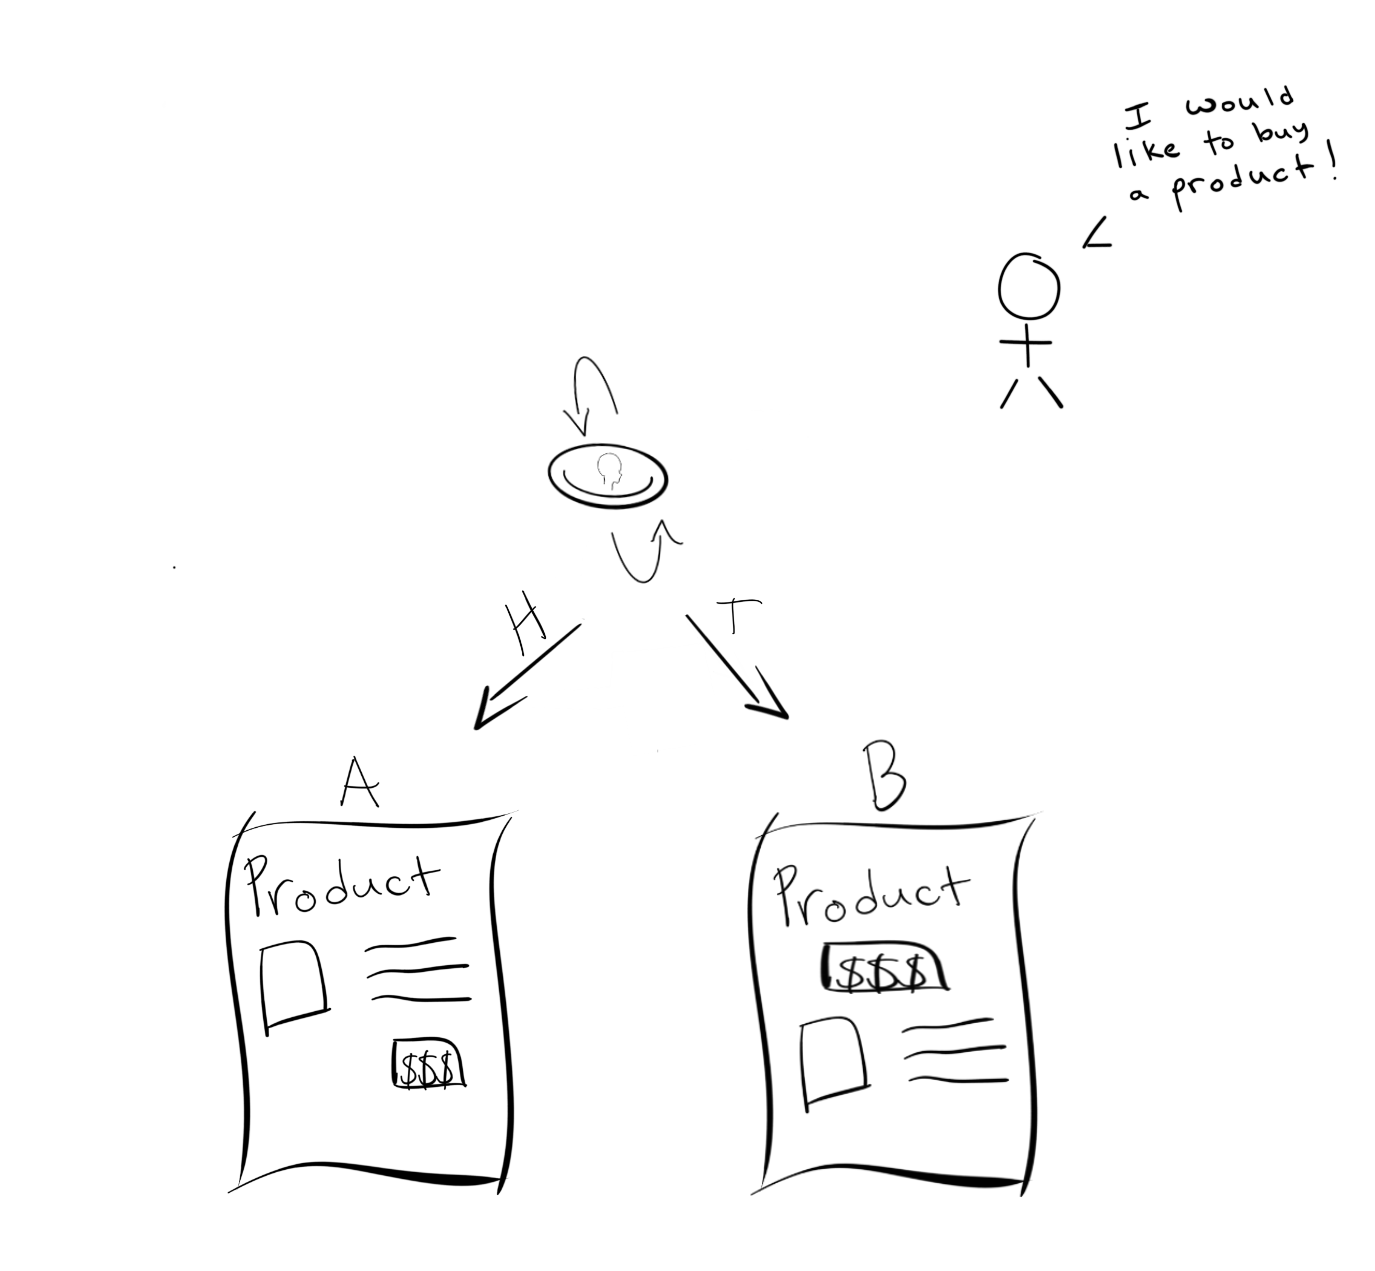 I would
like to buy
a product!
H
T
A
B
Product
$$$
Product
$$$